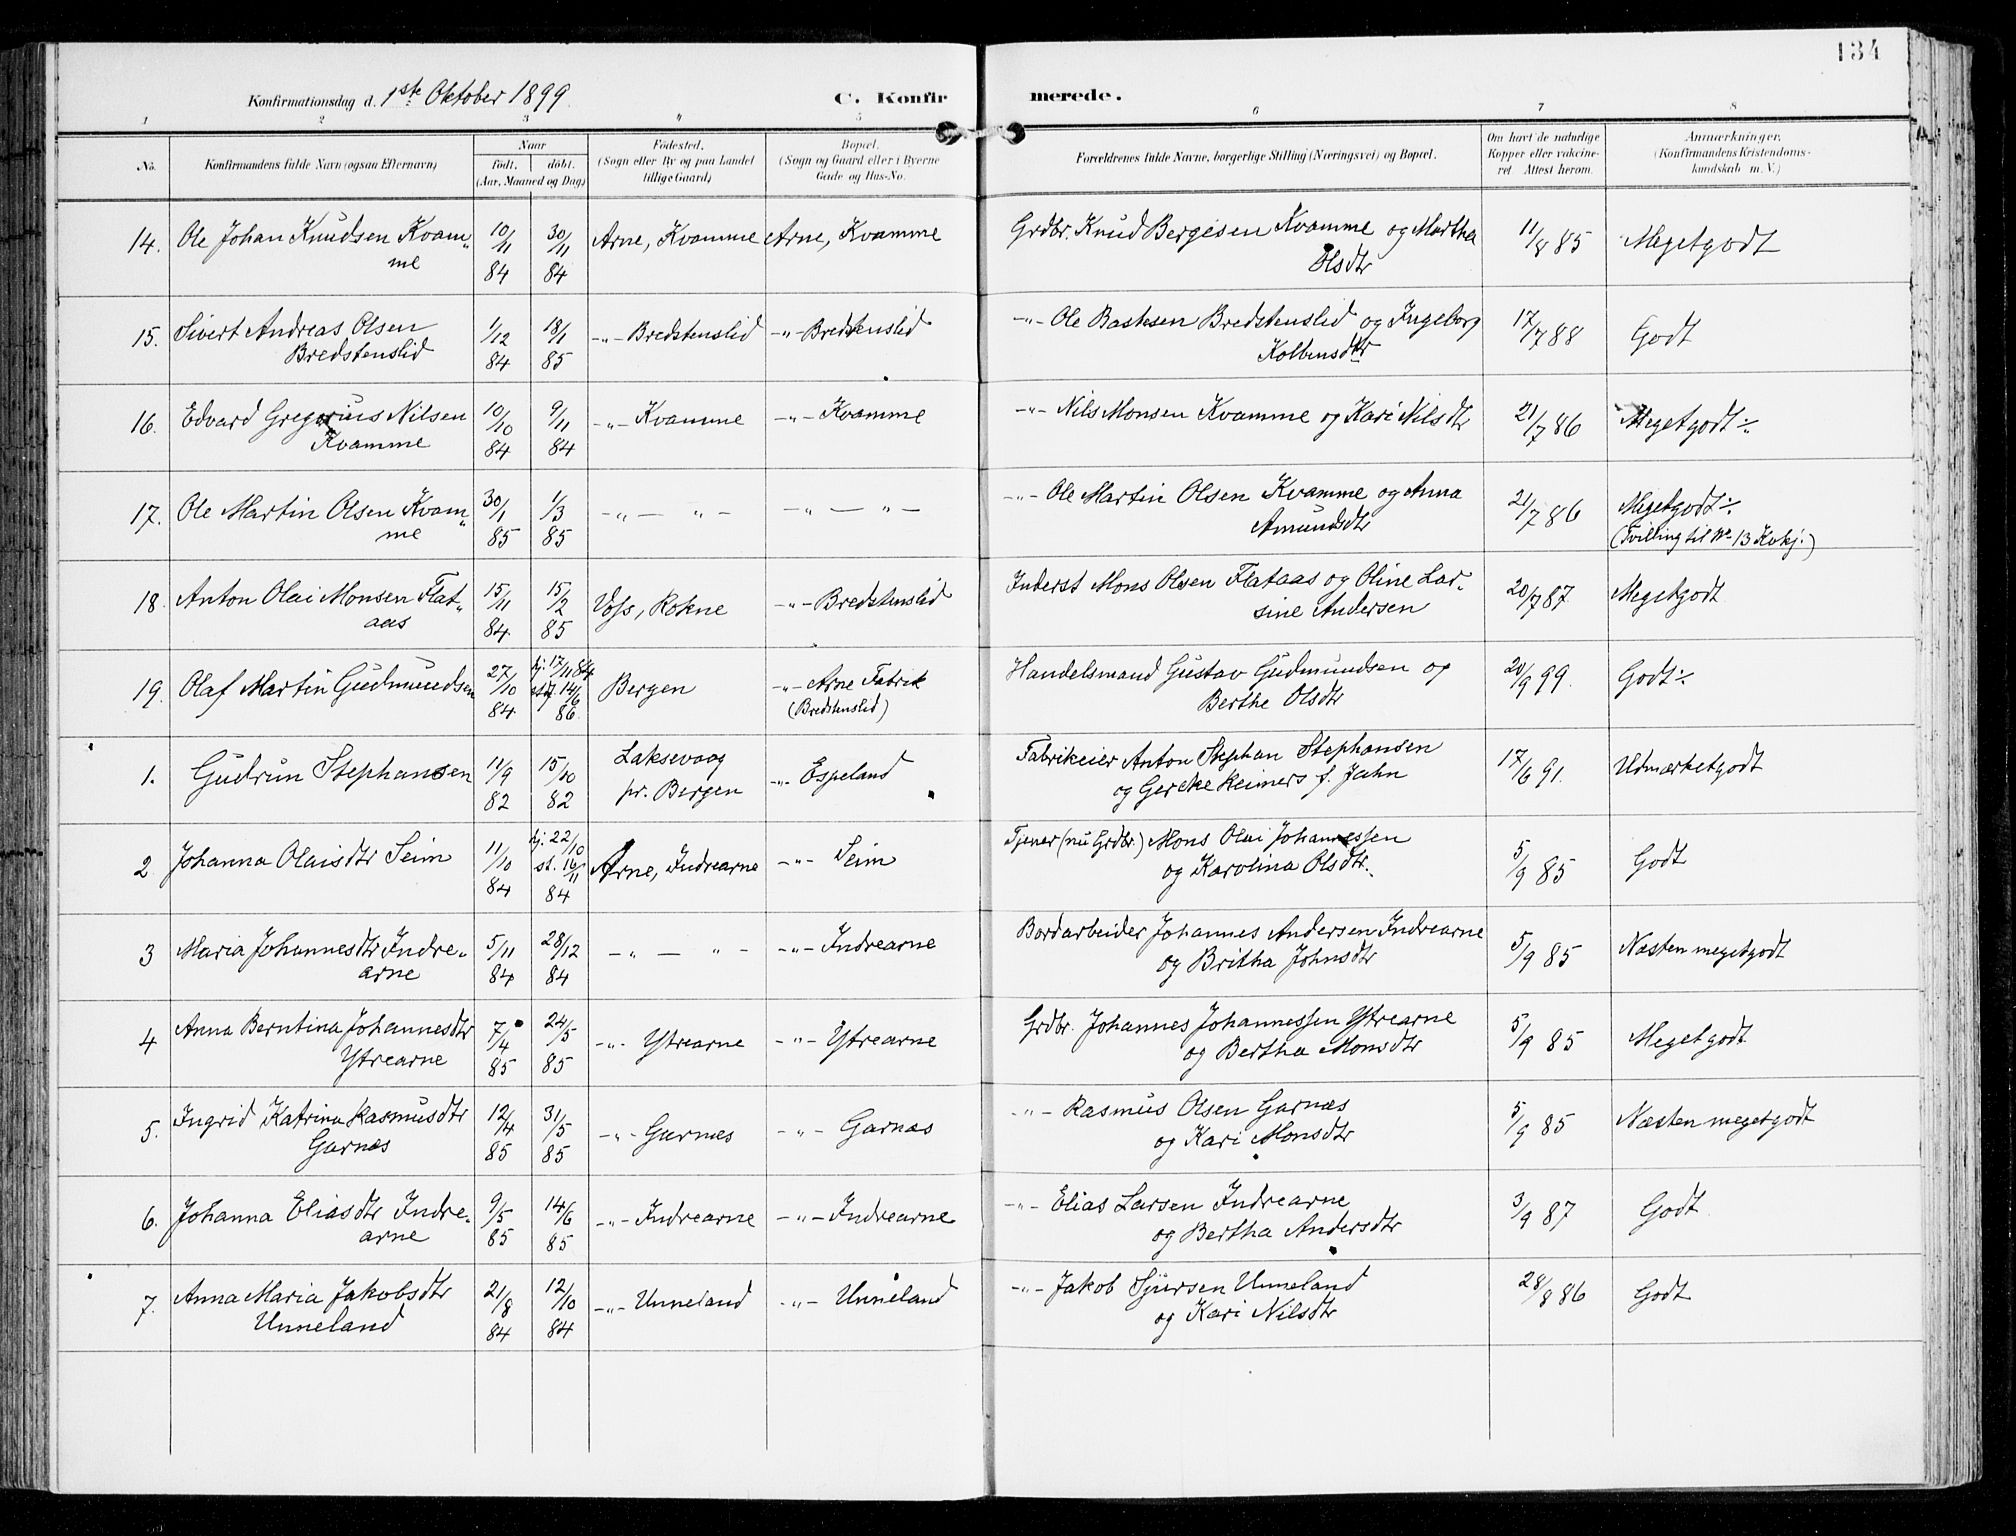 134
Konfirmationsdag d. 1ste Oktober 1899. C. Konfirmerede.
1 2 3 4 5 6 7 8
No. Konfirmandens fulde Navn (ogsaa Efternavn). Naar født. døbt. (Aar, Maaned og Dag) Fødested. (Sogn eller By og paa Landet tillige Gaard) Bopæl. (Sogn og Gaard eller i Byerne Gade og Hus-No. Forældrenes fulde Navne, borgerlige Stilling (Næringsvei) og Bopæl. Om havt de naturlige Kopper eller vakcineret. Attest herom. Anmærkninger. (Konfirmandens Kristendomskundskab m. V.)
14. Ole Johan Knudsen Kvamme 10/11 84 30/11 84 Arne, Kvamme Arne, Kvamme Grdbr. Knud Bergesen Kvamme og Martha Olsdtr 11/8 85 Megetgodt
15. Sivert Andreas Olsen Bredstenslid 1/12 84 18/1 85 -"- Bredstenslid -"- Bredstenslid -"- Ole Bastesen Bredstenslid og Ingeborg Kolbensdtr 17/7 88 Godt
16. Edvard Gregorius Nilsen Kvamme 10/10 84 9/11 84 -"- Kvamme -"- Kvamme -"- Nils Monsen Kvamme og Kari Nilsdtr 21/7 86 Megetgodt÷
17. Ole Martin Olsen Kvamme 30/1 85 1/3 85 -"- "- -"- "- -"- Ole Martin Olsen Kvamme og Anna Amundsdtr 21/7 86 Megetgodt÷ (Tvilling til No 13 Kvkj.)
18. Anton Olai Monsen Flataas 15/11 84 15/2 85 Voss, Rokne -"- Bredstenslid Inderst Mons Olsen Flataas og Oline Larsine Andersen 20/7 87 Megetgodt
19. Olaf Martin Gudmundsen 27/10 84 hj. 17/11 84 st. 14/6 86 Bergen -"- Arne Fabrik (Bredstenslid) Handelsmand Gustav Gudmundsen og Berthe Olsdtr 20/9 99. Godt÷
1. Gudrun Stephansen 11/9 82 15/10 82 Laksevaag pr. Bergen -"- Espeland Fabrikeier Anton Stephan Stephansen og Gercke Reimers f. Jahn 17/6 91. Udmærketgodt
2. Johanna Olaisdtr Seim 11/10 84 hj. 22/10 st. 16/11 84 Arne, Indrearne -"- Seim Tjener (nu Grdbr.) Mons Olai Johannessen og Karolina Olsdtr. 5/9 85 Godt
3 Maria Johannesdtr Indrearne 5/11 84 28/12 84 -"- "- -"- Indrearne Bordarbeider Johannes Andersen Indrearne og Britha Johnsdtr 5/9 85 Næsten megetgodt
4 Anna Berntina Johannesdtr Ytrearne 7/4 85 24/5 85 -"- Ytrearne -"- Ytrearne Grdbr. Johannes Johannessen Ytrearne og Bertha Monsdtr 5/9 85 Megetgodt
5. Ingrid Katrina Rasmusdtr Garnæs 12/4 85 31/5 85 -"- Garnæs -"- Garnæs -"- Rasmus Olsen Garnæs og Kari Monsdtr 5/9 85 Næsten megetgodt
6. Johanna Eliasdtr Indrearne 9/5 85 14/6 85 -"- Indrearne -"- Indrearne -"- Elias Larsen Indrearne og Bertha Andersdtr 3/9 87 Godt
7. Anna Maria Jakobsdtr Unneland 21/8 84 12/10 84 -"- Unneland -"- Unneland -"- Jakob Sjursen Unneland og Kari Nilsdtr 28/8 86 Godt